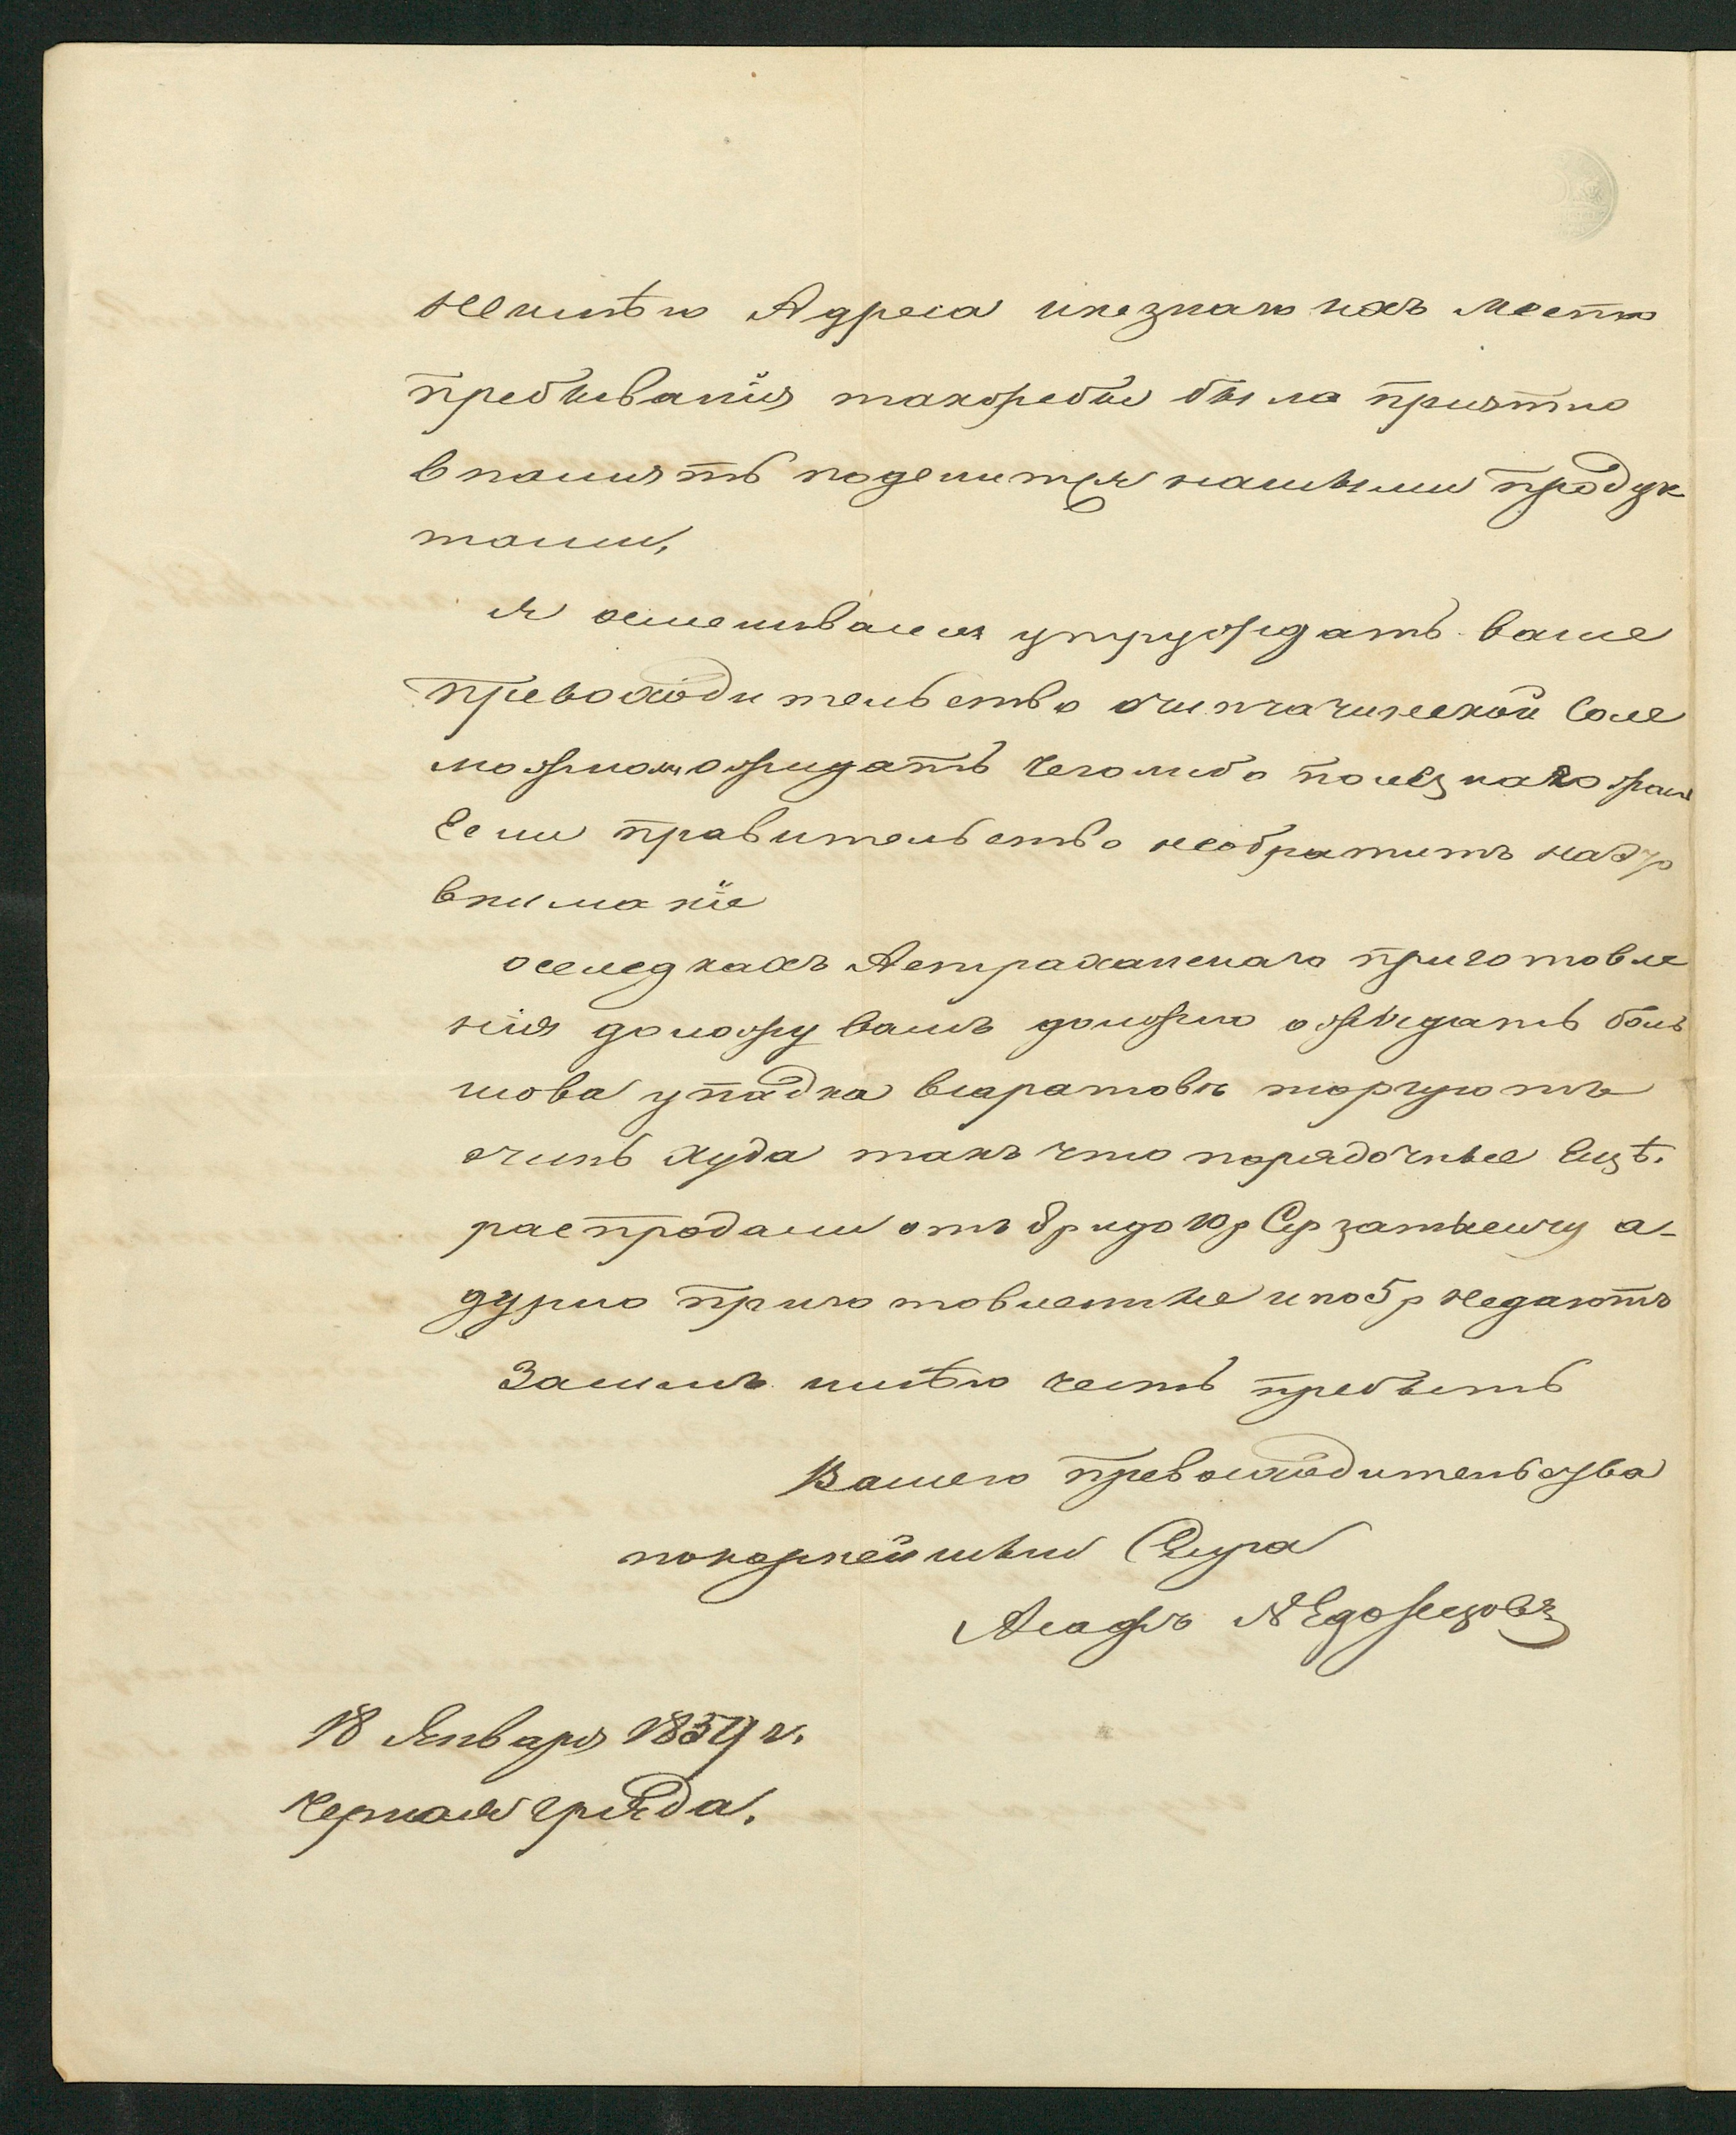 неимѣю Адреса инезнаю ихъ место
пребыванїя такожебы была приятно
впамять поделится нашыми продук
тами,
я осмеливался утруждать ваше
превосходительство очипчачинской Соле
можноли ожидать чего либо полезнаго
Если правительство необратитъ
вниманїе
оселедкахъ Астраханскаго приготовле
нїя доложу вамъ должно ожыдать боль
шова упадка всаратовѣ торгуютъ
очинь худа такъ что порядочные
распродали отъ 8р идо 10р Сер затысечу а-
дурно приготовленные ипо 5р недаютъ
Засимъ имѣю честь пребыть
Вашего превосходительства
покорнейшыи Слуга
18 Января 1859 г.
Черная гряда.